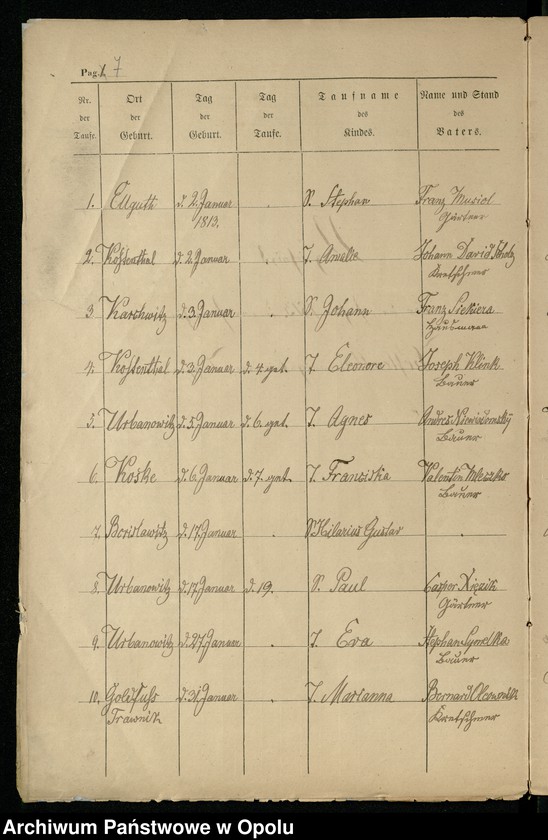 Pag. 7
Nr. der Taufe. Ort der Geburt. Tag der Geburt. Tag der Taufe. Taufname des Kindes. Name und Stand des Vaters.
1. Ellguth d. 2. Januar 1813. S. Stephan Franz Musiol Gärtner
2. Kostenthal d. 2. Januar T. Amalie Johann David Scholz Kretschmer
3. Karchwitz d. 3. Januar S. Johann Franz Siekiera
4. Kostenthal d. 3. Januar d. 4. get. T. Eleonore Joseph Klink Bauer
5. Urbanowitz d. 5. Januar d. 6. get. T. Agnes Andres Bauer
6. Koske d. 6. Januar d. 7. get. T. Franciska Valentin Mleczko Bauer
7. Borislawitz d. 17. Januar S. Hilarius Gustav
8. Urbanowitz d. 17. Januar d. 19. S. Paul Caspor Gärtner
9. Urbanowitz d. 27. Januar T. Eva Stephan Bauer
10. Trawnik d. 31. Januar T. Marianna Bernard Kretschmer
Archiwum Państwowe w Opolu